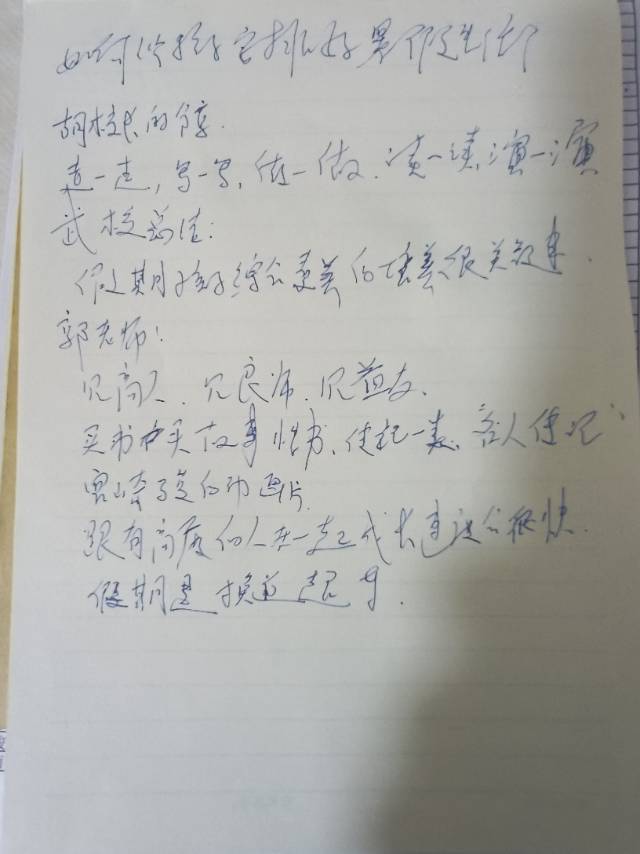 如何给孩子安排好暑假生活
胡校长的分享.
走一走，写一写，做一做、读一读，演一演
武校
假期孩子综合素养的培养很关键.
郭老师：
见高人、见良师、见益友.
买书 故事性书、传记一类、名人传记
宫崎骏的动画片
跟有高度的人在一起成长速度会很快.
假期是换道超车.